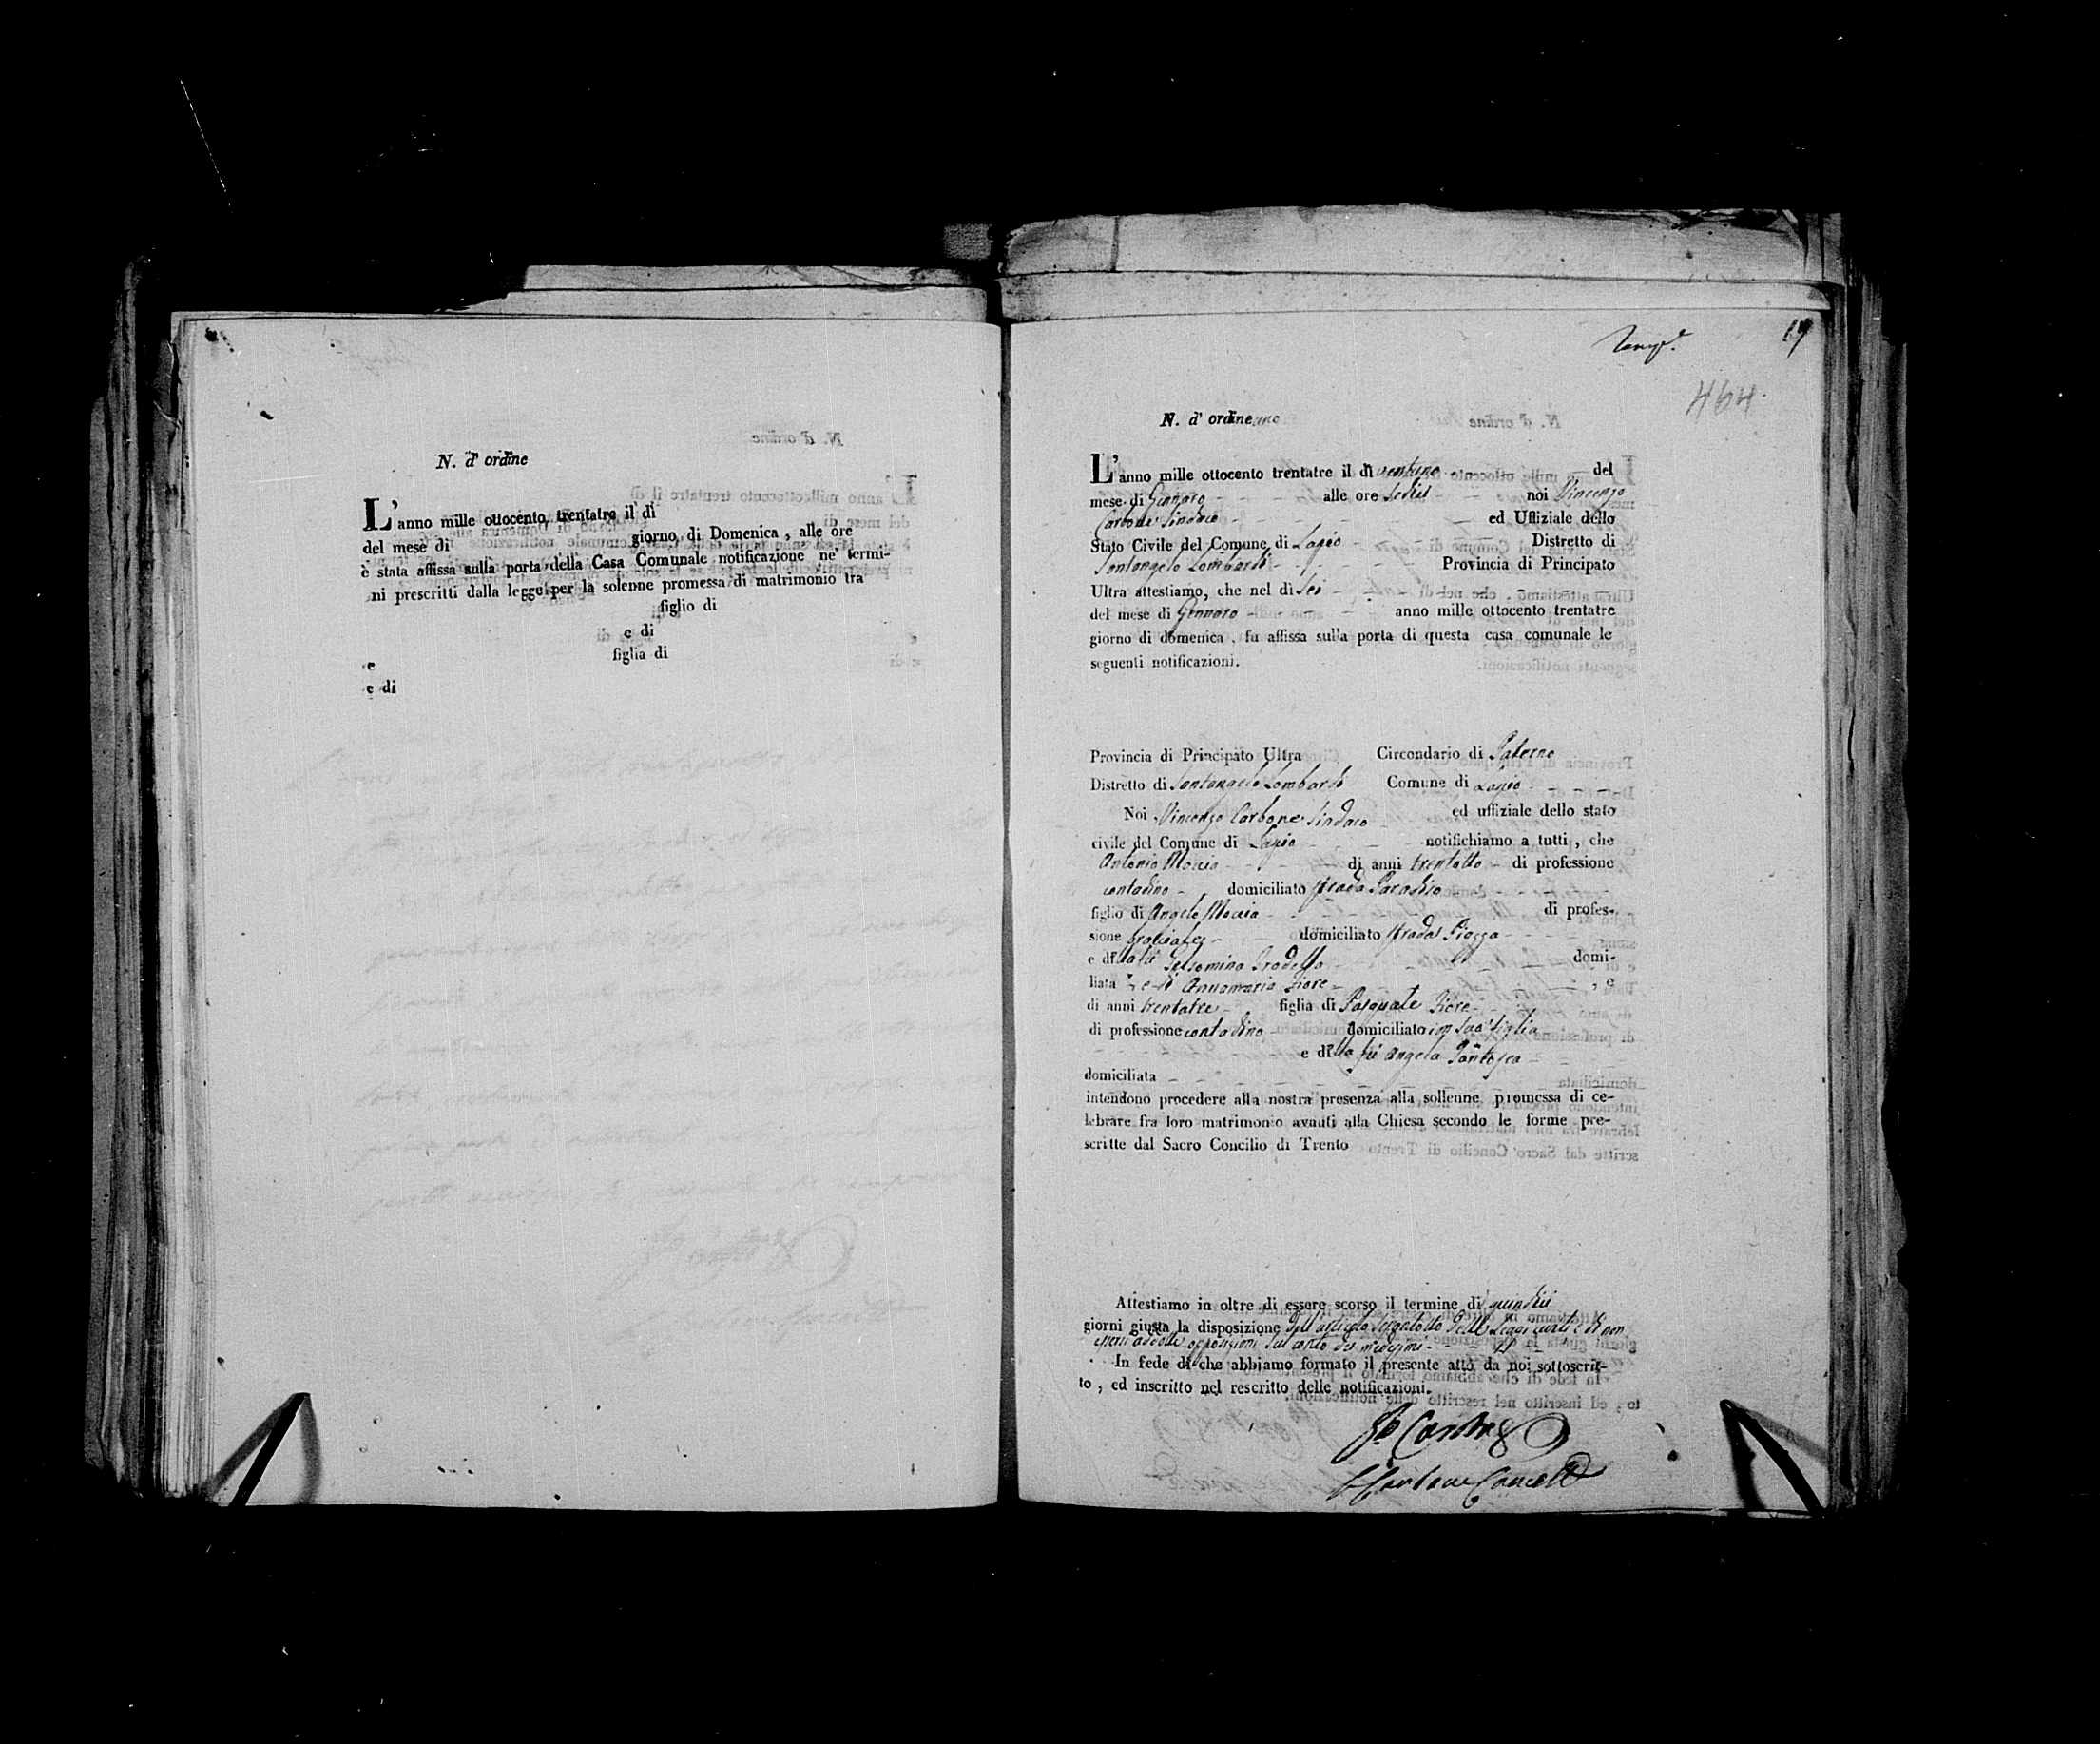 N. d' ordine
L'anno mille ottocento trentatre il di
del mese di giorno di Domenica, alle ore
è stata affissa sulla porta della Casa Comunale notificazione ne' termi-
ni prescritti dalla legge per la solenne promessa di matrimonio tra
figlio di
e di
e figlia di
e di
19
464.
N. d' ordine uno
L'anno mille ottocento trentatre il dì ventuno del
mese di Gennaro alle ore sedici noi Vincenzo
Carbone Sindaco ed Uffiziale dello
Stato Civile del Comune di Lapio Distretto di
Santangelo Lombardi Provincia di Principato
Ultra attestiamo, che nel dì sei
del mese di Gennaro anno mille ottocento trentatre
giorno di domenica, fu affissa sulla porta di questa casa comunale le
seguenti notificazioni.
Provincia di Principato Ultra Circondario di Paterno
Distretto di Santangelo Lombardi Comune di Lapio
Noi Vincenzo Carbone Sindaco ed uffiziale dello stato
civile del Comune di Lapio notifichiamo a tutti, che
Antonio Moccia di anni trentotto di professione
contadino domiciliato strada Paradiso
figlio di Angelo Moccia di profes-
sione domiciliato strada Piazza
e di Gelsomina domi-
liata e di Annamaria Fiore e,
di anni trentatre figlia di Pasquale Fiore
di professione contadino domiciliato sua figlia
e di lla fu Angela
domiciliata
intendono procedere alla nostra presenza alla sollenne promessa di ce-
lebrare fra loro matrimonio avanti alla Chiesa secondo le forme pre-
scritte dal Sacro Concilio di Trento
Attestiamo in oltre di essere scorso il termine di quindici
giorni giusta la disposizione dell'articolo settantotto delle Leggi civili e di non
essersi addotte opposizioni sul conto dei medesimi
In fede di che abbiamo formato il presente atto da noi sottoscrit-
to, ed inscritto nel rescritto delle notificazioni.
Carbone
Carbone Cancell